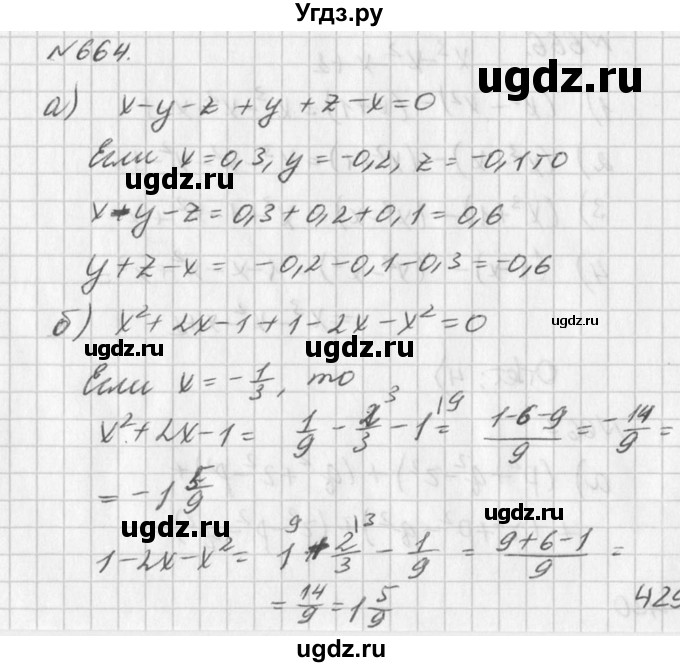 Угдз.ру
№664.
а) x-y-z+y+z-x=0
ugdz.ru
Если x=0,3, y=-0,2, z=-0,1 то
ugdz.ru ugdz.ru
x-y-z=0,3+0,2+0,1=0,6
y+z-x= -0,2-0,1-0,3=-0,6
ugdz.ru
б) x²+2x-1+1-2x-x²=0
ugdz.ru ugdz.ru
Если x=-1/3, то
x²+2x-1= 1/9 - 2/3 |3 - 1 |9 = (1-6-9)/9 = -14/9 =
ugdz.ru
= -1 5/9
ugdz.ru ugdz.ru
1-2x-x²= 1 |9 + 2/3 |3 - 1/9 = (9+6-1)/9 =
ugdz.ru
= 14/9 = 1 5/9
429
ugdz.ru